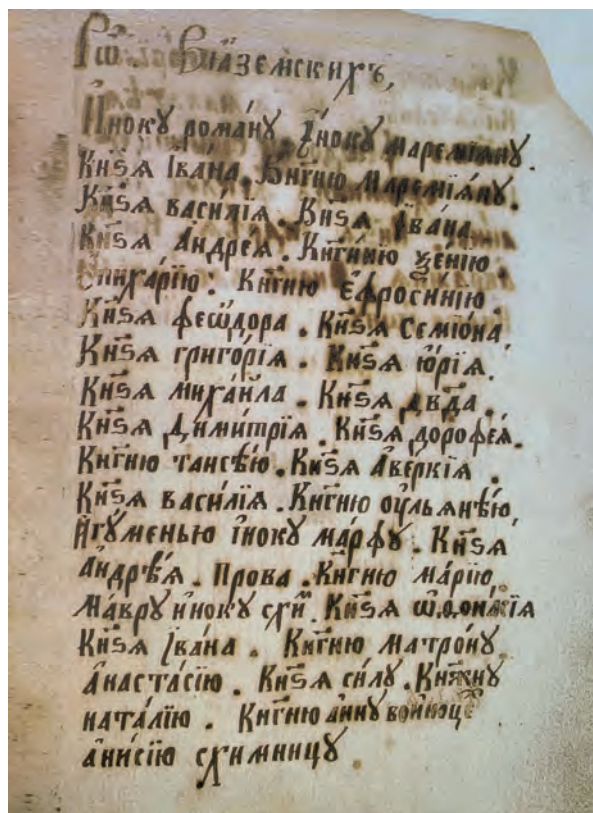 Рѡ҃. Вѧземскихъ,
Иноку рома́ну. І҆ноку маремїѧну.
Кн҃ѕѧ Іва́на. Кн҃гню Маремїѧ́ну.
Кн҃ѕѧ васи́лїѧ. Кн҃ѕѧ Іва́на.
Кн҃ѕѧ Андре́ѧ. Кн҃гиню ѯе́нїю
Кн҃гню є҆фроси́нїю.
Кн҃ѕѧ феѡ́дора. Кн҃ѕѧ Семїо́на
Кн҃ѕѧ григо́рїѧ. Кн҃ѕѧ ю҆́рїѧ.
Кн҃ѕѧ миха́йла. Кн҃ѕѧ дв҃да.
Кн҃ѕѧ Дими́трїѧ. Кн҃ѕѧ дорофе́ѧ.
Кн҃гню таисѣ́ю. Кн҃ѕѧ Аве́ркїѧ.
Кн҃ѕѧ васи́лїѧ. Кн҃гню оу҆льѧнѣ́ю,
И҆гу́менью і҆ноку ма́рфу. Кн҃ѕѧ
андрѣ́ѧ. Прова. Кн҃гню ма́рїю
Ма́вру и҆ноку схи. Кн҃ѕѧ
Кн҃ѕѧ Іва́на. Кн҃гню Матро́ну
анаста́сїю. Кн҃ѕѧ си́лу. Кнѧжну
ната́лїю. Кн҃гню а́нну
ани́сїю схимницу